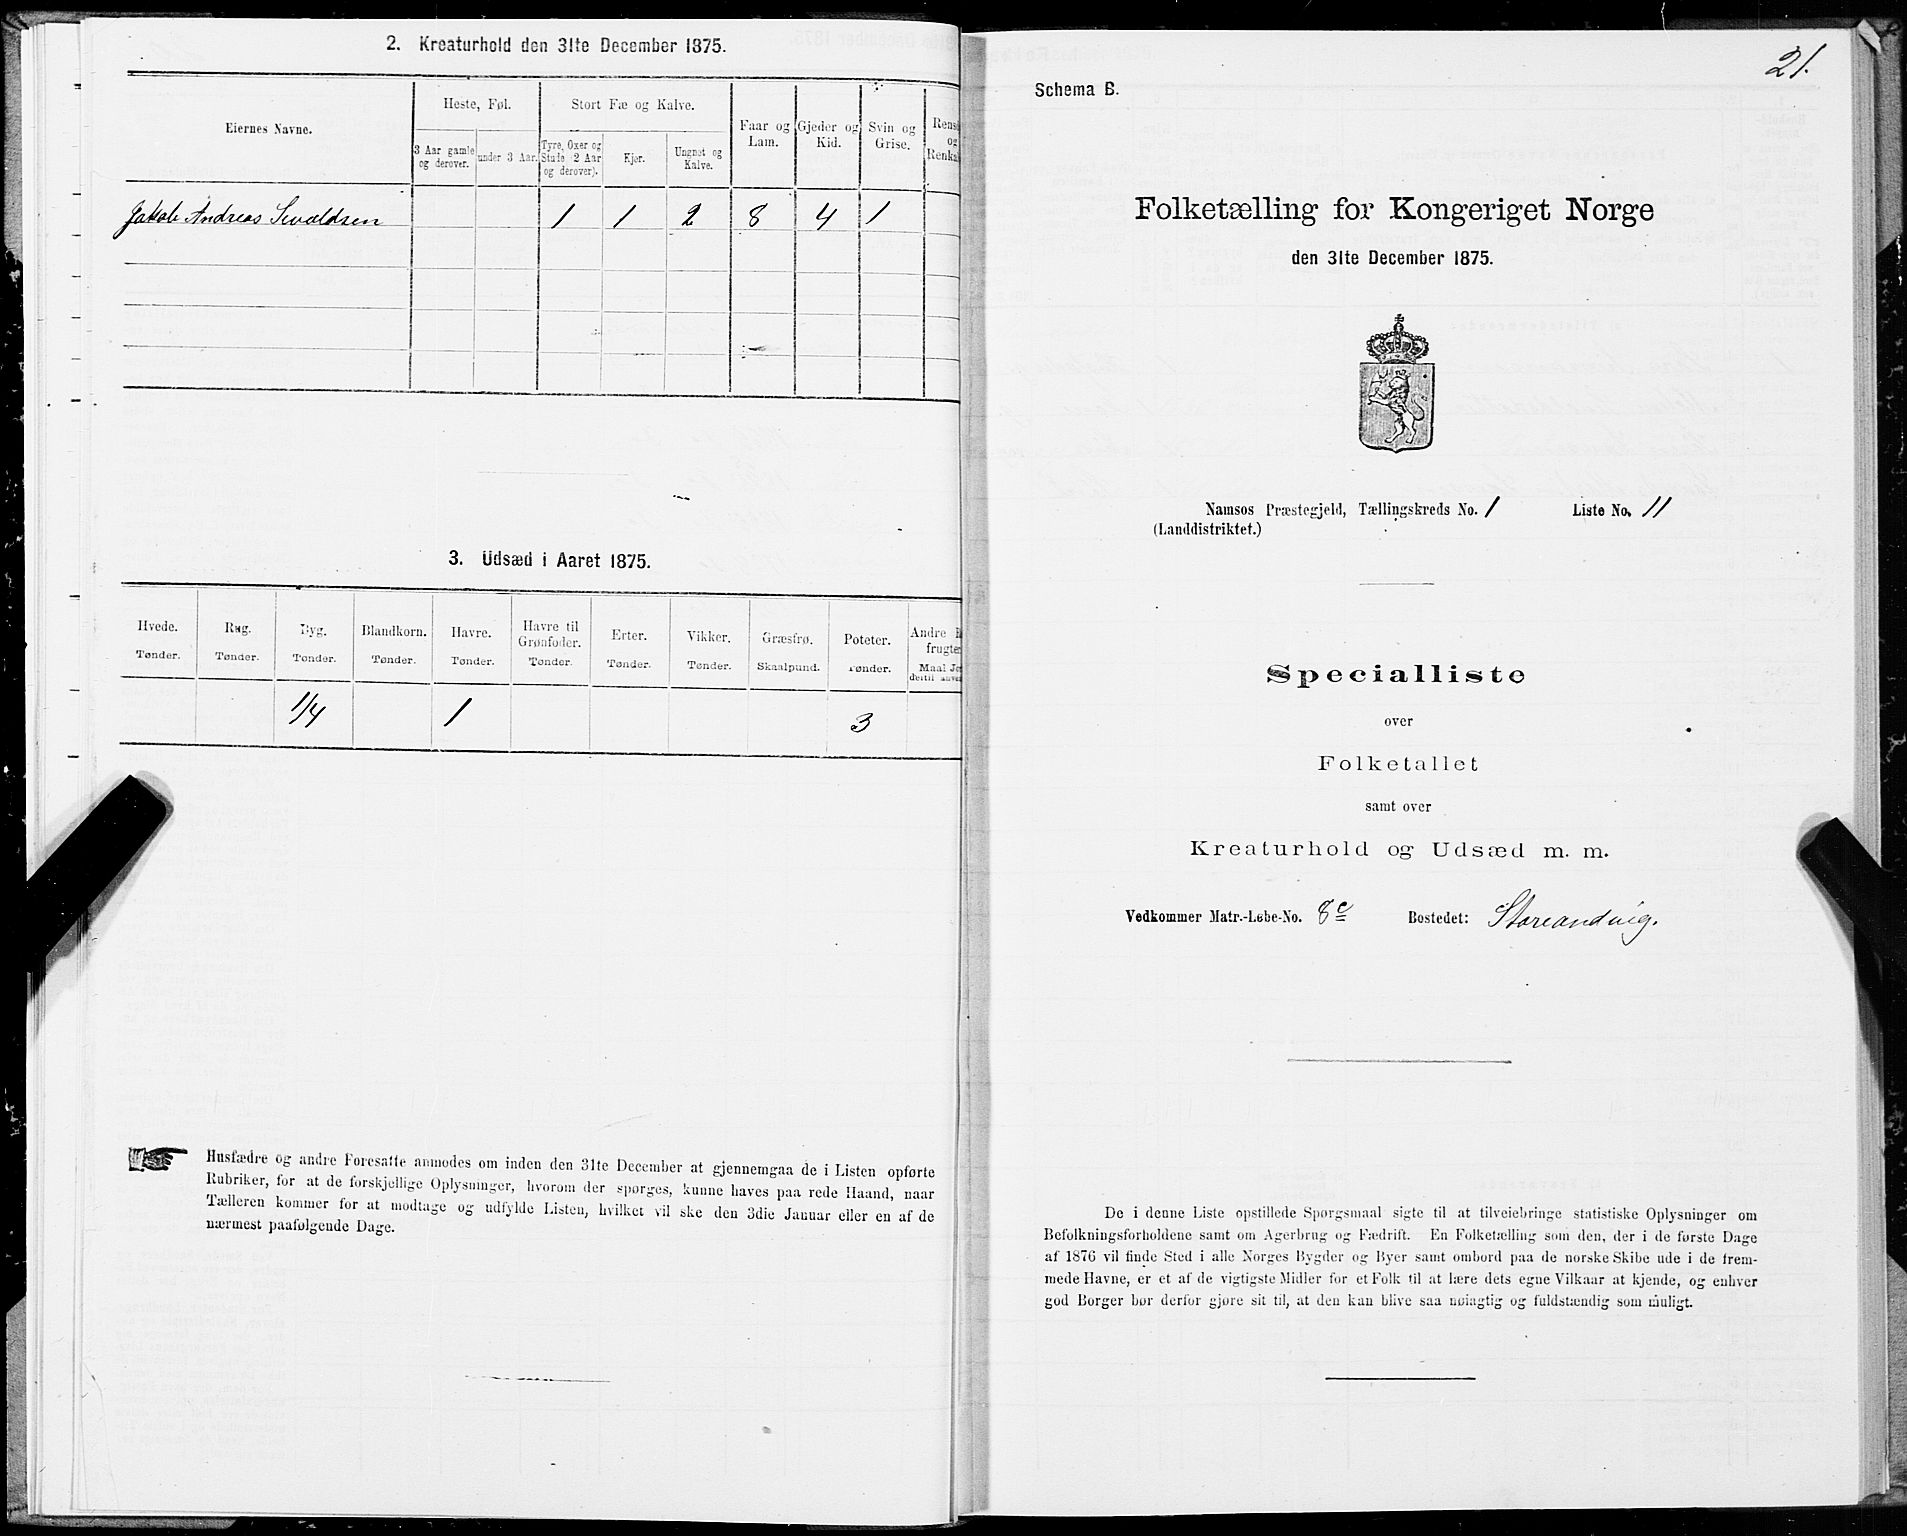 2. Kreaturhold den 31te December 1875.
Eiernes Navne.
Heste, Føl.
Stort Fæ og Kalve.
Faar og
Lam.
Gjeder og
Kid.
Svin og
Grise.
og
3 Aar gamle
og derover.
under 3 Aar.
Tyre, Oxer og
Stude (2 Aar
og derover).
Kjør.
Ungnøt og
Kalve.
Jakob Andreas Sivaldsen 1 1 2 8 4 1
3. Udsæd i Aaret 1875.
Hvede.
Tønder.
Rug.
Tønder.
Byg.
Tønder.
Blandkorn.
Tønder.
Havre.
Tønder.
Havre til
Grønfoder.
Tønder.
Erter.
Tønder.
Vikker.
Tønder.
Græsfrø.
Skaalpund.
Poteter.
Tønder.
Andre
1/4 1 3
Husfædre og andre Foresatte anmodes om inden den 31te December at gjennemgaa de i Listen opførte
Rubriker, for at de forskjellige Oplysninger, hvorom der spørges, kunne haves paa rede Haand, naar
Tælleren kommer for at modtage og udfylde Listen, hvilket vil ske den 3die Januar eller en af de
nærmest paafølgende Dage.
21.
Schema B.
Folketælling for Kongeriget Norge
den 31te December 1875.
Namsos Præstegjeld, Tællingskreds No. 1 Liste No. 11
(Landdistriktet.)
Specialliste
over
Folketallet
samt over
Kreaturhold og Udsæd m. m.
Vedkommer Matr.-Løbe-No. 8c Bostedet: Storeandvig.
De i denne Liste opstillede Spørgsmaal sigte til at tilveiebringe statistiske Oplysninger om
Befolkningsforholdene samt om Agerbrug og Fædrift. En Folketælling som den, der i de første Dage
af 1876 vil finde Sted i alle Norges Bygder og Byer samt ombord paa de norske Skibe ude i de frem-
mede Havne, er et af de vigtigste Midler for et Folk til at lære dets egne Vilkaar at kjende, og enhver
god Borger bør derfor gjøre sit til, at den kan blive saa nøiagtig og fuldstændig som muligt.